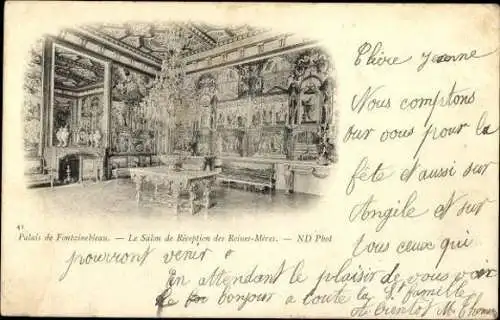 Chère Jeanne
Nous comptons
sur vous pour la
fête et aussi sur
Angile et sur
tous ceux qui
pourront venir
En attendant le plaisir de vous voir
le bonjour a toute la Ste famille
A bientot M. Thomas
41
Palais de Fontainebleau. — Le Salon de Réception des Reines-Mères. — ND Phot